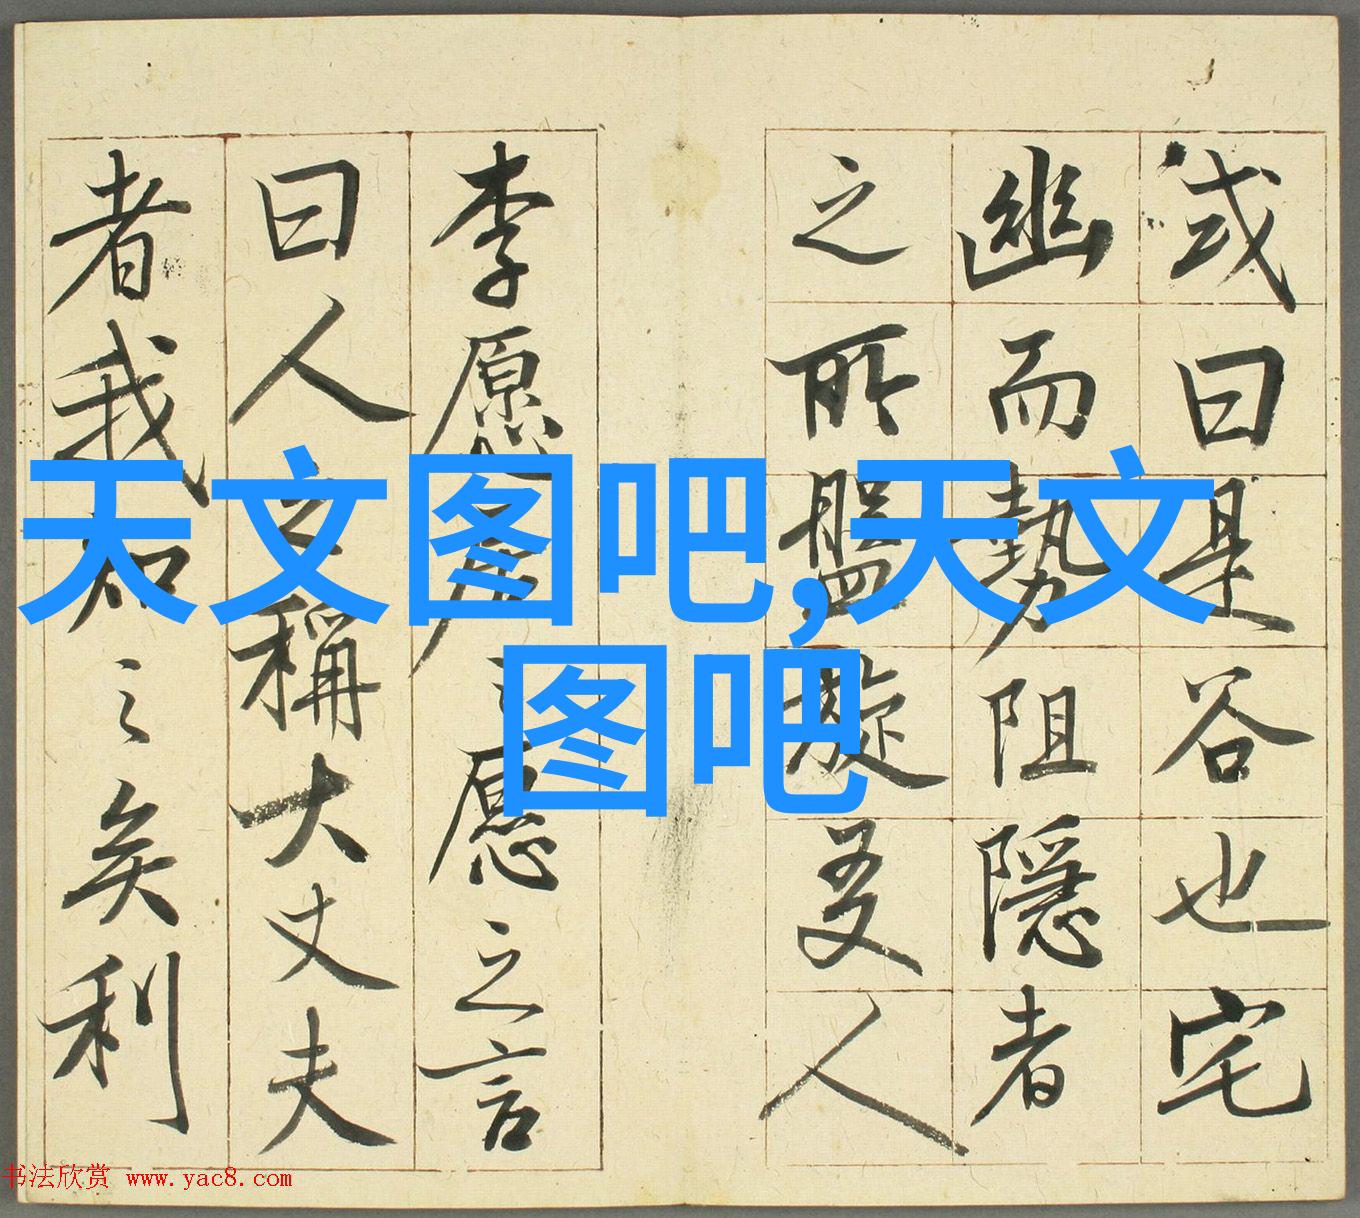 或曰是谷也宅
幽而勢阻隱者
之所盤旋友人
李愿居之愿之言
曰人之稱大丈夫
者我知之矣利
天文图吧,天文
图吧
书法欣赏 www.yac8.com